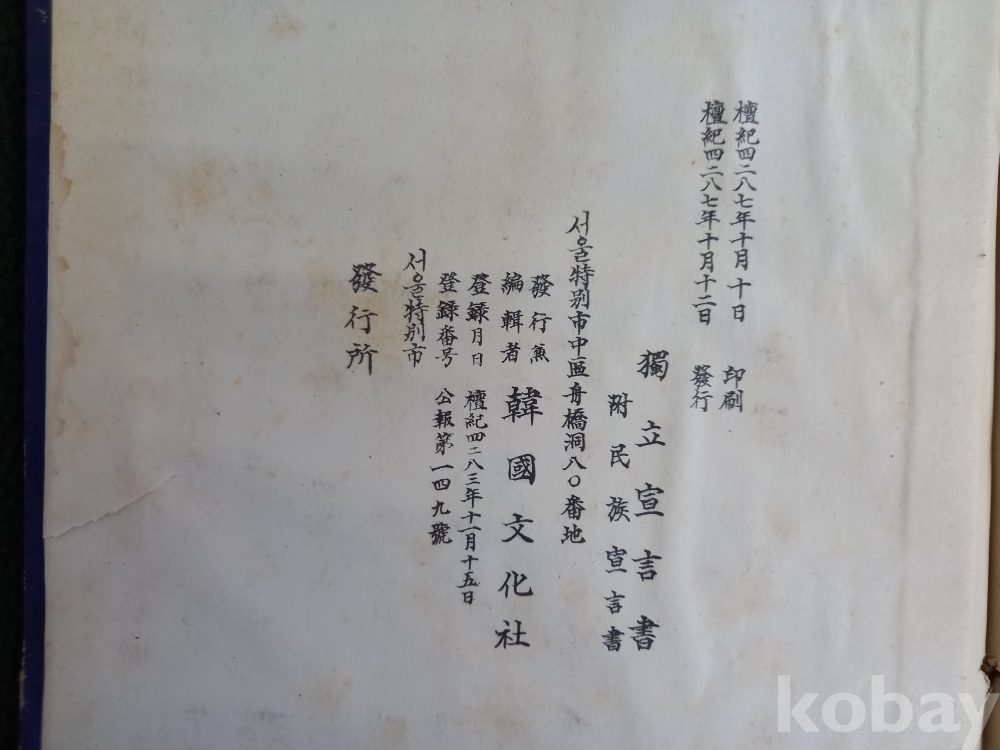 檀紀四二八七年十月 十日 印刷
檀紀四二八七年十月十二日 發行
獨立宣言書
附民族宣言書
서울特別市中區舟橋洞八〇番地
發行兼
編輯者 韓國文化社
登錄月日 檀紀四二八三年十一月十五日
登錄番号 公報第一四九號
서울特別市
發行所
kobay